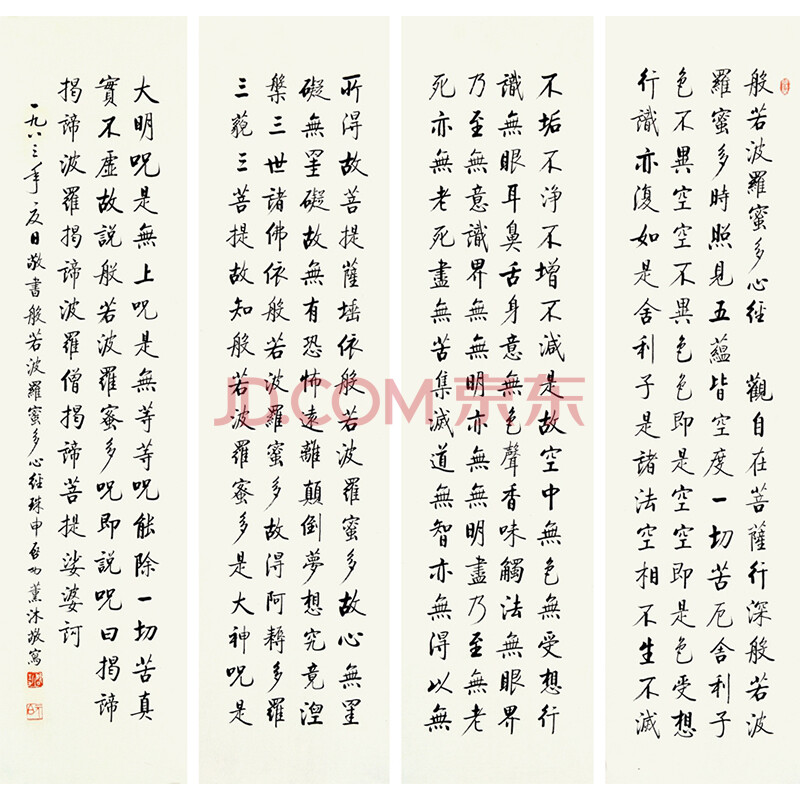 般若波羅蜜多心經 觀自在菩薩行深般若波
羅蜜多時照見五蘊皆空度一切苦厄舍利子
色不異空空不異色色即是空空即是色受想
行識亦復如是舍利子是諸法空相不生不滅
不垢不淨不增不減是故空中無色無受想行
識無眼耳鼻舌身意無色聲香味觸法無眼界
乃至無意識界無無明亦無無明盡乃至無老
死亦無老死盡無苦集滅道無智亦無得以無
所得故菩提薩埵依般若波羅蜜多故心無罣
礙無罣礙故無有恐怖遠離顛倒夢想究竟涅
槃三世諸佛依般若波羅蜜多故得阿耨多羅
三藐三菩提故知般若波羅蜜多是大神呪是
大明呪是無上呪是無等等呪能除一切苦真
實不虛故說般若波羅蜜多呪即說呪曰揭諦
揭諦波羅揭諦波羅僧揭諦菩提娑婆訶
一九八三年夏日敬書般若波羅蜜多心經珠申启功薰沐敬寫
JD.COM 京东